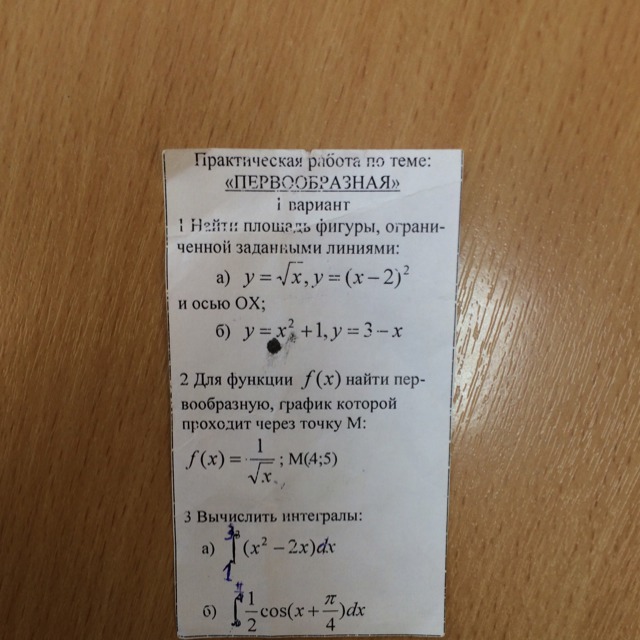 Практическая работа по теме:
«ПЕРВООБРАЗНАЯ»
1 вариант
1 Найти площадь фигуры, ограни-
ченной заданными линиями:
а) y = √x, y = (x − 2)²
и осью OX;
б) y = x² + 1, y = 3 − x
2 Для функции f(x) найти пер-
вообразную, график которой
проходит через точку М:
f(x) = 1/√x ; М(4;5)
3 Вычислить интегралы:
а) ∫₁³ (x² − 2x)dx
б) ∫ 1/2 cos(x + π/4)dx